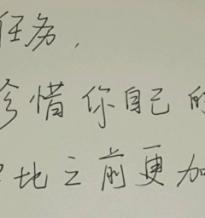 任务,
珍惜你自己的
地之前更加